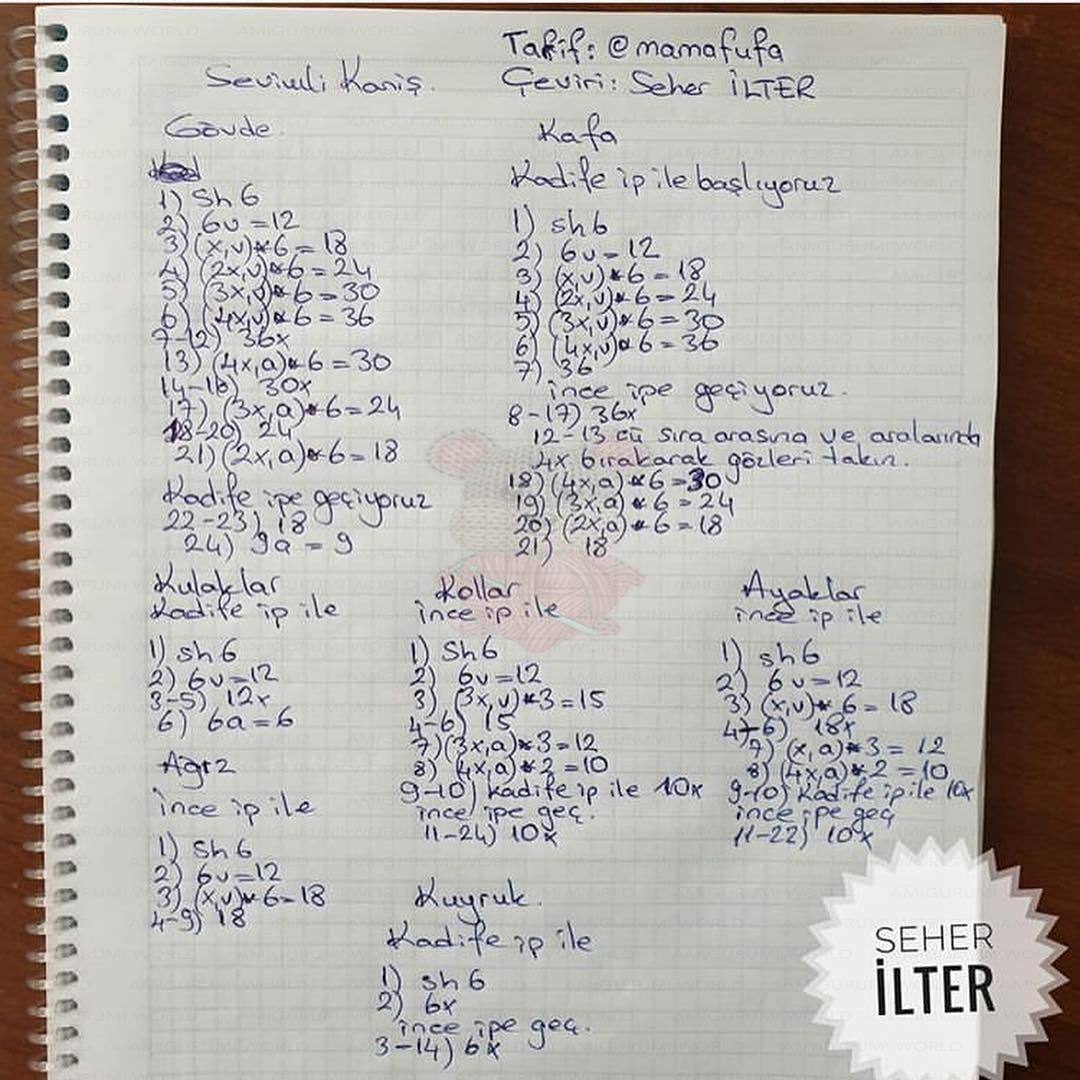 Tarif: @mamafufa
Sevimli Kaniş.
Çeviri: Seher İLTER
Gövde.
1) Sh 6
2) 6v = 12
3) (x,v)*6 = 18
4) (2x,v)*6 = 24
5) (3x,v)*6 = 30
6) (4x,v)*6 = 36
7-12) 36x
13) (4x,a)*6 = 30
14-16) 30x
17) (3x,a)*6 = 24
18-20) 24
21) (2x,a)*6 = 18
Kadife ipe geçiyoruz
22-23) 18
24) 9a = 9
Kafa
Kadife ip ile başlıyoruz
1) sh 6
2) 6v = 12
3) (x,v)*6 = 18
4) (2x,v)*6 = 24
5) (3x,v)*6 = 30
6) (4x,v)*6 = 36
7) 36
ince ipe geçiyoruz.
8-17) 36x
12-13 cü sıra arasına ve aralarında
4x bırakarak gözleri takın.
18) (4x,a)*6 = 30
19) (3x,a)*6 = 24
20) (2x,a)*6 = 18
21) 18
Kulaklar
Kadife ip ile
1) sh 6
2) 6v = 12
3-5) 12x
6) 6a = 6
Ağız
ince ip ile
1) sh 6
2) 6v = 12
3) (x,v)*6 = 18
4-9) 18
Kollar
ince ip ile
1) Sh 6
2) 6v = 12
3) (3x,v)*3 = 15
4-6) 15
7) (3x,a)*3 = 12
8) (4x,a)*2 = 10
9-10) kadife ip ile 10x
ince ipe geç.
11-24) 10x
Ayaklar
ince ip ile
1) sh 6
2) 6v = 12
3) (x,v)*6 = 18
4-6) 18x
7) (x,a)*3 = 12
8) (4x,a)*2 = 10
9-10) Kadife ip ile 10x
ince ipe geç
11-22) 10x
Kuyruk.
Kadife ip ile
1) sh 6
2) 6x
ince ipe geç.
3-14) 6x
SEHER
İLTER